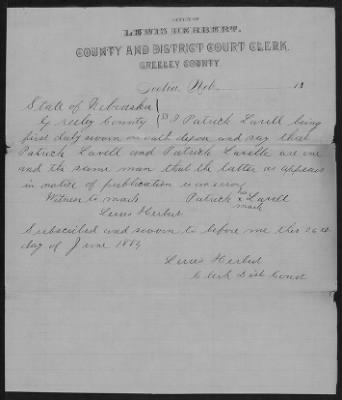 OFFICE OF
LEWIS HERBERT,
COUNTY AND DISTRICT COURT CLERK.
GREELEY COUNTY.
Scotia, Neb. 18
State of Nebraska
Greeley County } SS I Patrick Lavell being
first duly sworn on oath depose and say that
Patrick Lavell and Patrick Lavelle are one
and the same man that the latter as appears
in notice of publication is an error
Witness to mark Patrick x Lavell
mark
Lewis Herbert
Subscribed and sworn to before me this 26th
day of June 188
Lewis Herbert
Clerk Dist Court